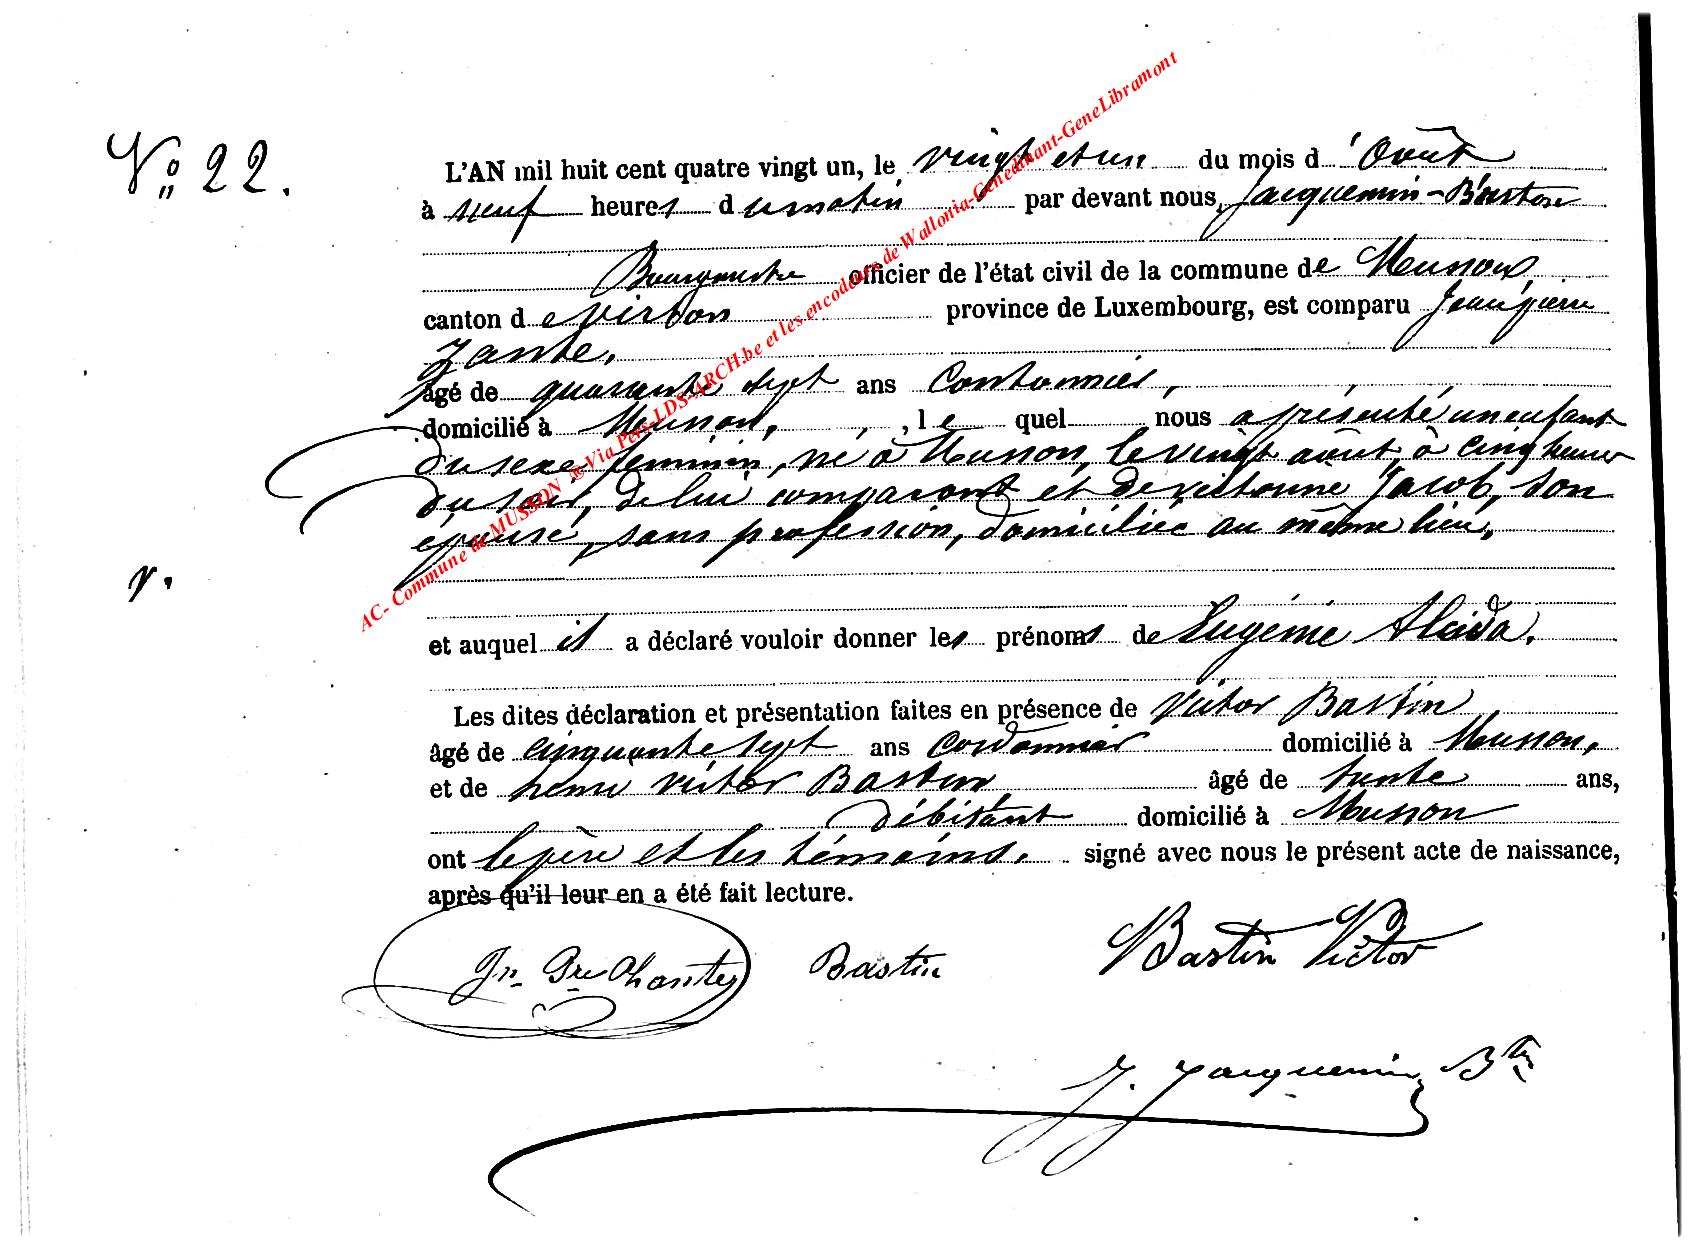 N° 22.
L'AN mil huit cent quatre vingt un, le vingt et un du mois d'Août
à neuf heures du matin par devant nous, Jacquemin-Bastin
Bourgmestre officier de l'état civil de la commune de Musson,
canton de Virton province de Luxembourg, est comparu Jean pierre
Zante,
âgé de quarante sept ans Cordonnier,
domicilié à Musson, , le quel nous a présenté un enfant
du sexe féminin, né à Musson, le vingt août à cinq heures
du soir, de lui comparant et de victorine Jacob, son
épouse, sans profession, domiciliée au même lieu,
v.
et auquel il a déclaré vouloir donner les prénoms de Eugénie Alida.
Les dites déclaration et présentation faites en présence de Victor Bastin
âgé de cinquante sept ans cordonnier domicilié à Musson,
et de henri victor Bastin, âgé de trente ans,
débitant domicilié à Musson
ont le père et les témoins. signé avec nous le présent acte de naissance,
après qu'il leur en a été fait lecture.
Jn Pre Chantez Bastin Bastin Victor
J. Jacquemin Btin
AC- Commune de MUSSON ® Via Pers-LDS-ARCH.be et les encodeurs de Wallonia-Genedinant-GeneLibramont